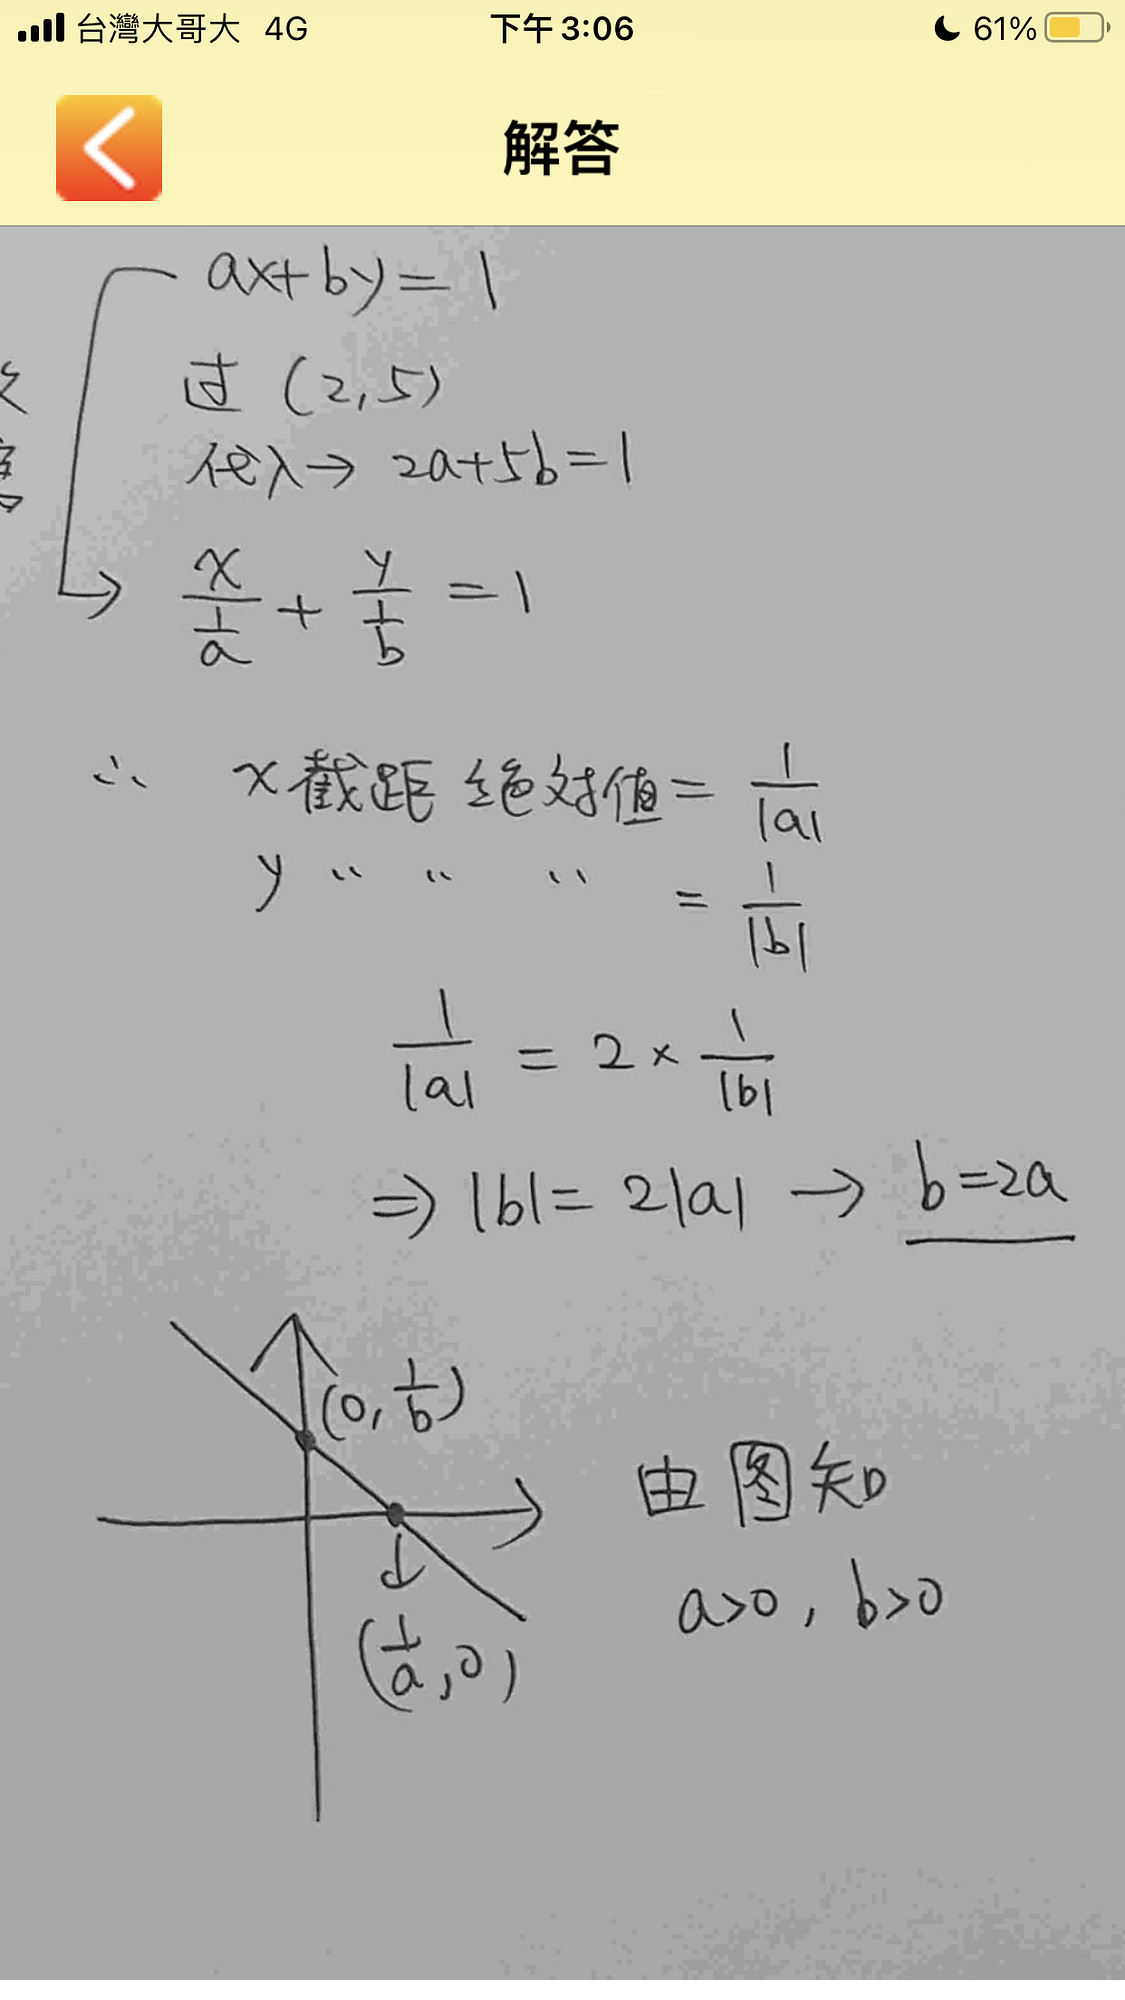 台灣大哥大 4G 下午3:06 61%
解答
ax+by=1
过 (2,5)
代入→ 2a+5b=1
x/(1/a) + y/(1/b) = 1
∴ x截距 绝对值= 1/|a|
y 〃 〃 〃 = 1/|b|
1/|a| = 2 × 1/|b|
⇒ |b|= 2|a| → b=2a
(0, 1/b)
由图知
a>0 , b>0
(1/a, 0)